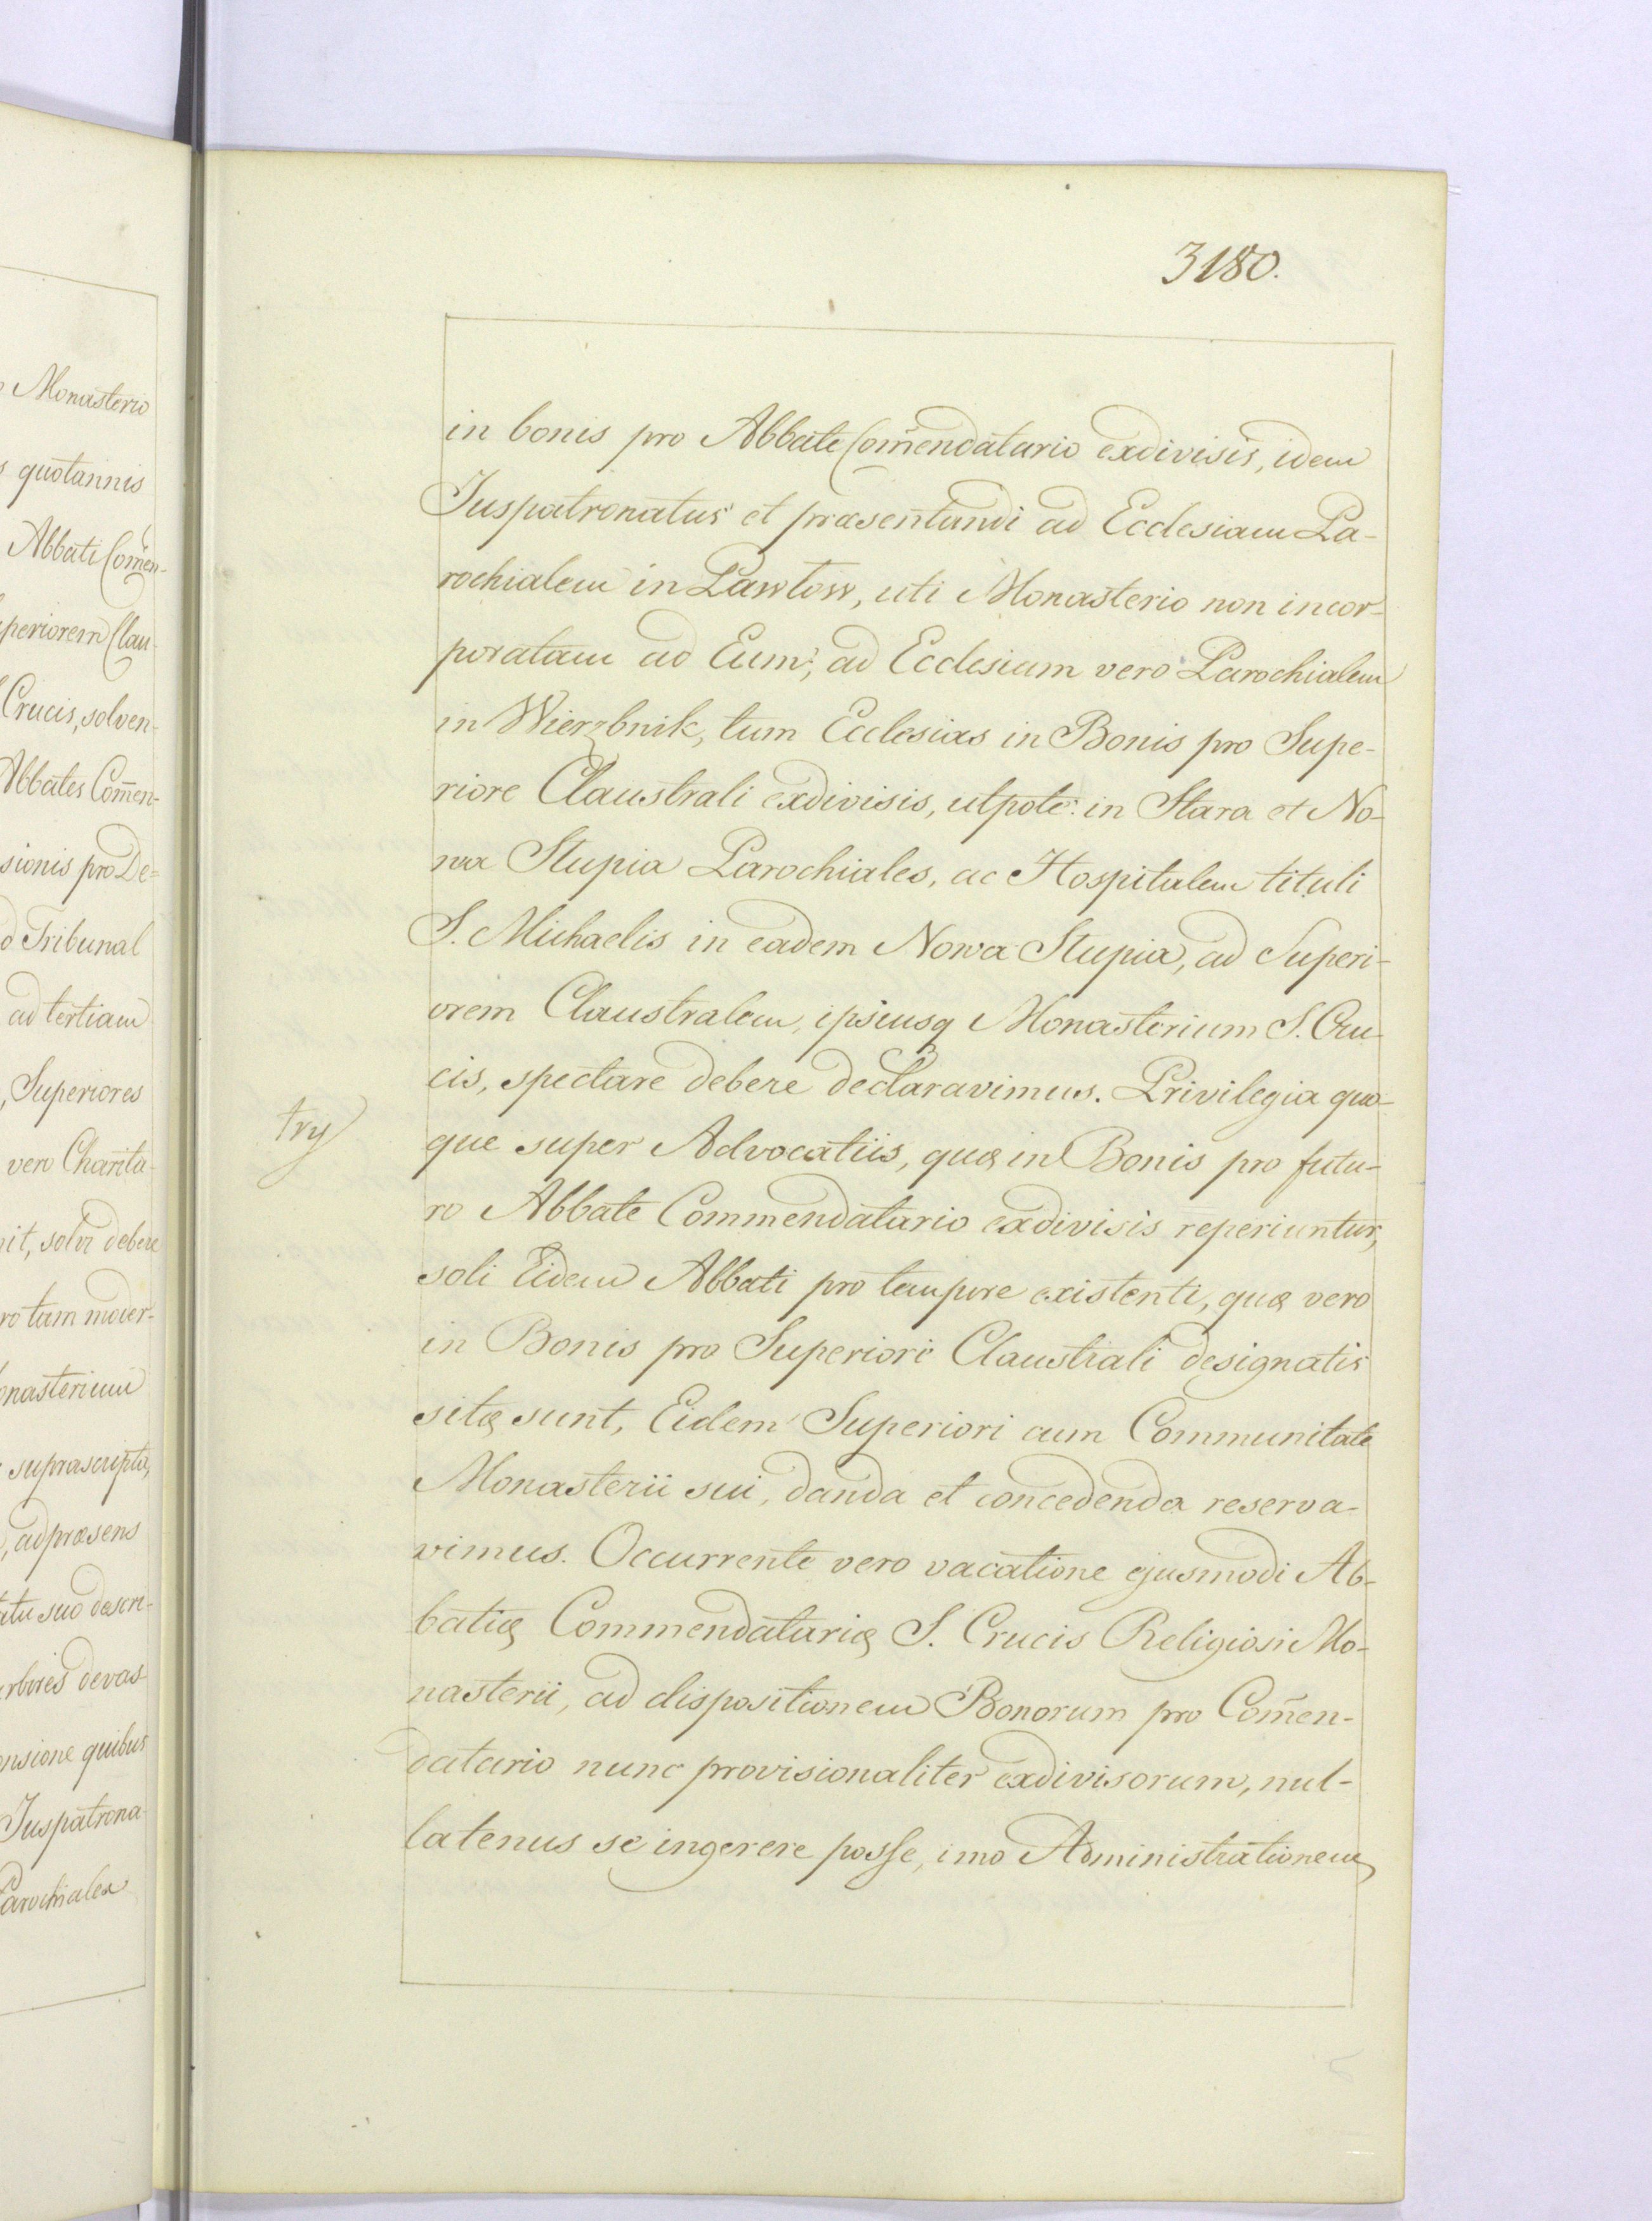 Monasterio
quotannis
Abbati Com̃en-
periorem Clau-
Crucis, solven-
Abbates Com̃en-
sionis pro De=
Tribunal
ad tertiam
, Superiores
vero Charita-
it, solvi debere
ro tam moder-
onasterium
suprascripta,
, ad præsens
atu suo descri-
devas-
ensione quibus
Juspatrona-
Parochiales
3180.
in bonis pro Abbate Com̃endatario exdivisis, idem
Juspatronatus et præsentandi ad Ecclesiam Pa-
rochialem in Pawłow, uti Monasterio non incor-
poratam ad Eum; ad Ecclesiam vero Parochialem
in Wierzbnik, tum Ecclesias in Bonis pro Supe-
riore Claustrali exdivisis, utpote: in Stara et No-
wa Słupia Parochiales, ac Hospitalem tituli
S. Michaelis in eadem Nowa Słupia, ad Superi-
orem Claustralem, ipsiusq Monasterium S. Cru-
cis, spectare debere declaravimus. Privilegia quo-
try
que super Advocatiis, quę in Bonis pro futu-
ro Abbate Commendatario exdivisis reperiuntur,
soli Eidem Abbati pro tempore existenti, quę vero
in Bonis pro Superiori Claustrali designatis
sitę sunt, Eidem Superiori cum Communitate
Monasterii sui, danda et concedenda reserva-
vimus. Occurrente vero vacatione ejusmodi Ab-
batię Commendatarię S. Crucis Religiosi Mo-
nasterii, ad dispositionem Bonorum pro Com̃en-
datario nunc provisionaliter exdivisorum, nul-
latenus se ingerere posse, imo Administrationem